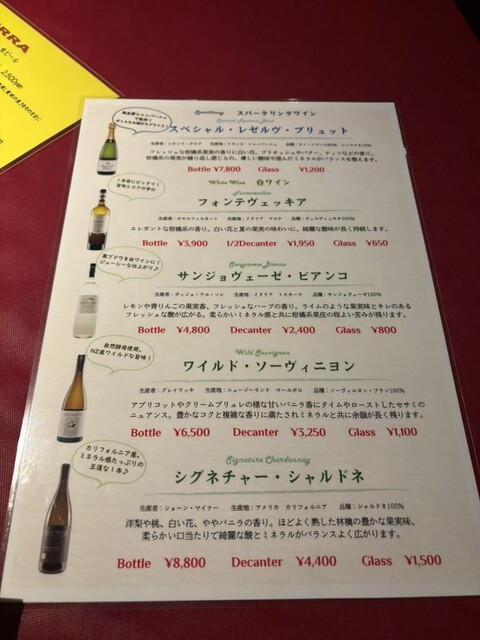 RRA
生ビール
2,500yen
Sparkling スパークリングワイン
Special Reserve Brut
スペシャル・レゼルヴ・ブリュット
フレッシュな柑橘系果実の香りに白い花、ブリオッシュやバター、ナッツなどの香り。
Bottle ¥7,800 Glass ¥1,200
White Wine 白ワイン
フォンテヴェッキア
生産地：イタリア マルケ 品種：ヴェルディッキオ100%
エレガントな柑橘系の香り。白い花と夏の果実の味わいに、綺麗な酸味が長く持続します。
Bottle ¥3,900 1/2Decanter ¥1,950 Glass ¥650
黒ブドウを白ワインに！
ジューシーな仕上がり♪
Sangiovese Bianco
サンジョヴェーゼ・ビアンコ
生産者：ポッジョ・アル・ソレ 生産地：イタリア トスカーナ 品種：サンジョヴェーゼ100%
レモンや青りんごの果実香、フレッシュなハーブの香り。ライムのような果実味とキレのある
フレッシュな酸が広がる。柔らかいミネラル感と共に柑橘系果皮の程よい苦みが残ります。
Bottle ¥4,800 Decanter ¥2,400 Glass ¥800
自然酵母使用。
NZ産ワイルドな旨味！
Wild Sauvignon
ワイルド・ソーヴィニヨン
生産者：グレイワッキ 生産地：ニュージーランド マールボロ 品種：ソーヴィニヨン・ブラン100%
アプリコットやクリームブリュレの様な甘いバニラ香にタイムやローストしたセサミの
ニュアンス。豊かなコクと複雑な香りに満たされミネラルと共に余韻が長く残ります。
Bottle ¥6,500 Decanter ¥3,250 Glass ¥1,100
カリフォルニア産。
ミネラル感たっぷりの
王道な1本♪
Signature Chardonnay
シグネチャー・シャルドネ
生産者：ショーン・マイナー 生産地：アメリカ カリフォルニア 品種：シャルドネ100%
洋梨や桃、白い花、ややバニラの香り。ほどよく熟した林檎の豊かな果実味、
柔らかい口当たりで綺麗な酸とミネラルがバランスよく広がります。
Bottle ¥8,800 Decanter ¥4,400 Glass ¥1,500